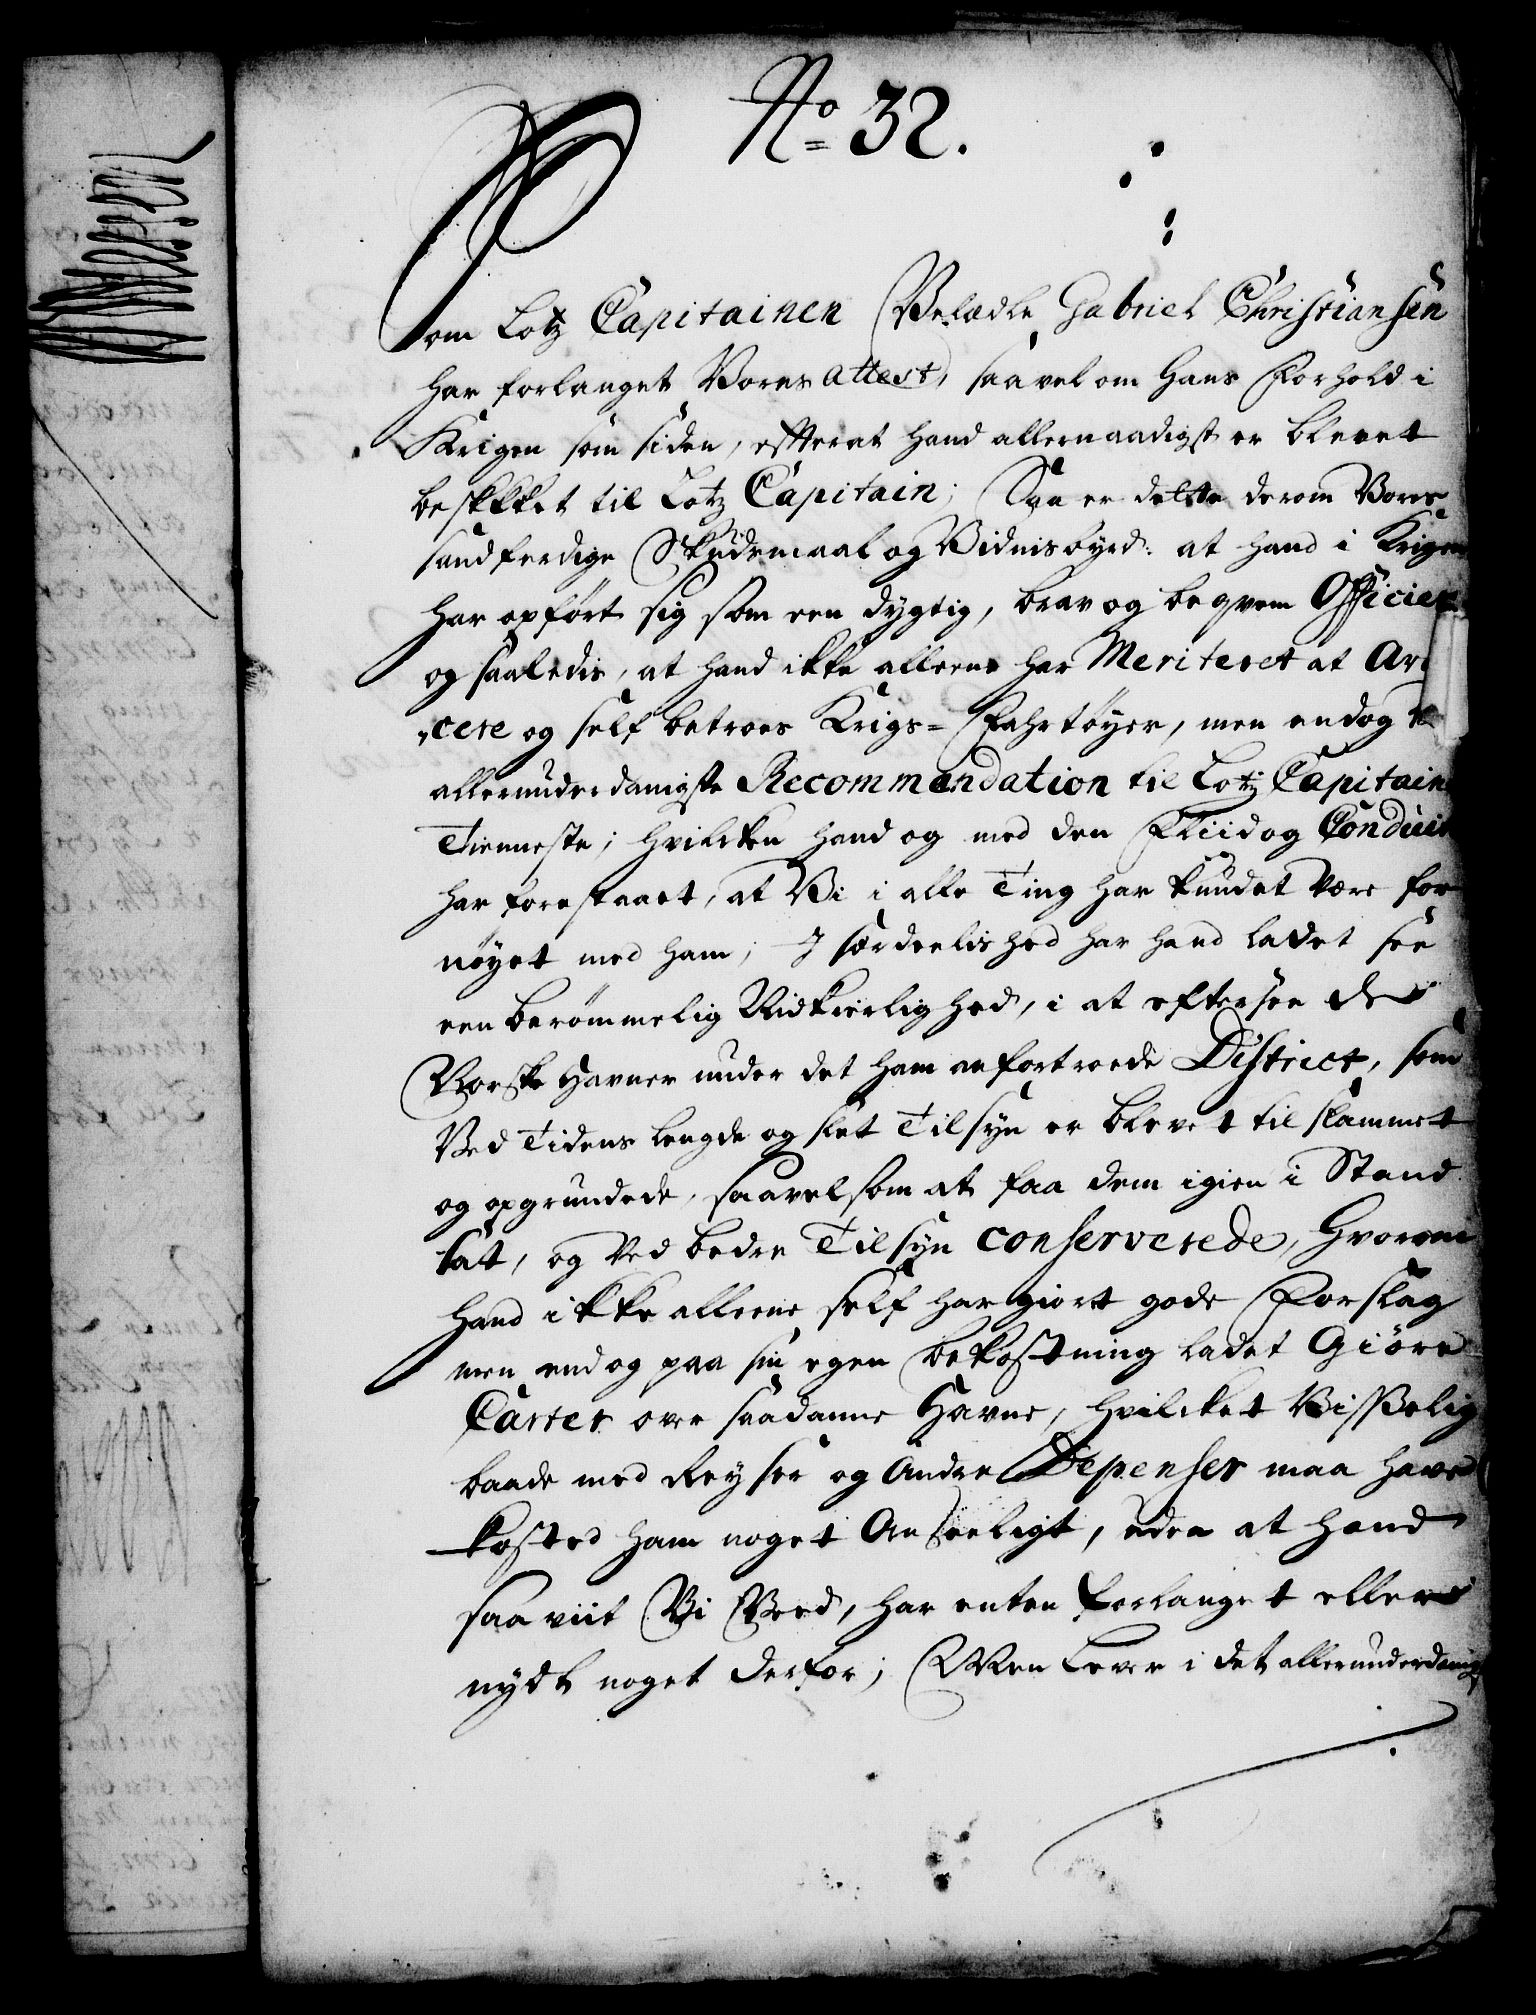 No 32.
Som Lotz Capitainen Velædle Gabriel Christiansen
har forlanget Vores Attest, saavel om Hans Forhold i
Krigen som siden, efterat hand allernaadigst er blevet
beskikket til Lotz Capitain; Saa er dette derom Vores
sandferdige Skudsmaal og Vidnisbyrd: at hand i Krigen
har opført sig som een dygtig, brav og beqvem Officier
og saaledis, at hand ikke alleene har Meriteret at
cere og self betroes Krigs-Fahrtøyer, men endog
allerunderdanigste Recommendation til Lotz Capitain
Tienneste; Hvilcken hand og med den Fliid og Conduite
har forestaaet, at Vi i alle Ting har kundet være for
nøyet med ham; I særdeelished har hand ladet see
een berømmelig Nidkierlighed, i at eftersee de
Norske Havner under det ham anfortroede District, som
Ved Tidens lengde og slet Tilsyn er blevet tilslammet
og opgrundede, saavelsom at faa dem igien i Stand
sat, og Ved bedre Tilsyn conserverede, Hvorom
hand ikke alleene self har giort gode Forslag
men endog paa sin egen bekostning ladet Giøre
Carter over saadanne Havne, hvilcket Visselig
baade med Reyser og Andre Depenser maa have
kosted ham noget Anseeligt, uden at hand
saa viit Vi Veed, har enten forlanget eller
nydt noget derfor; Men lever i det allerunderdanigste